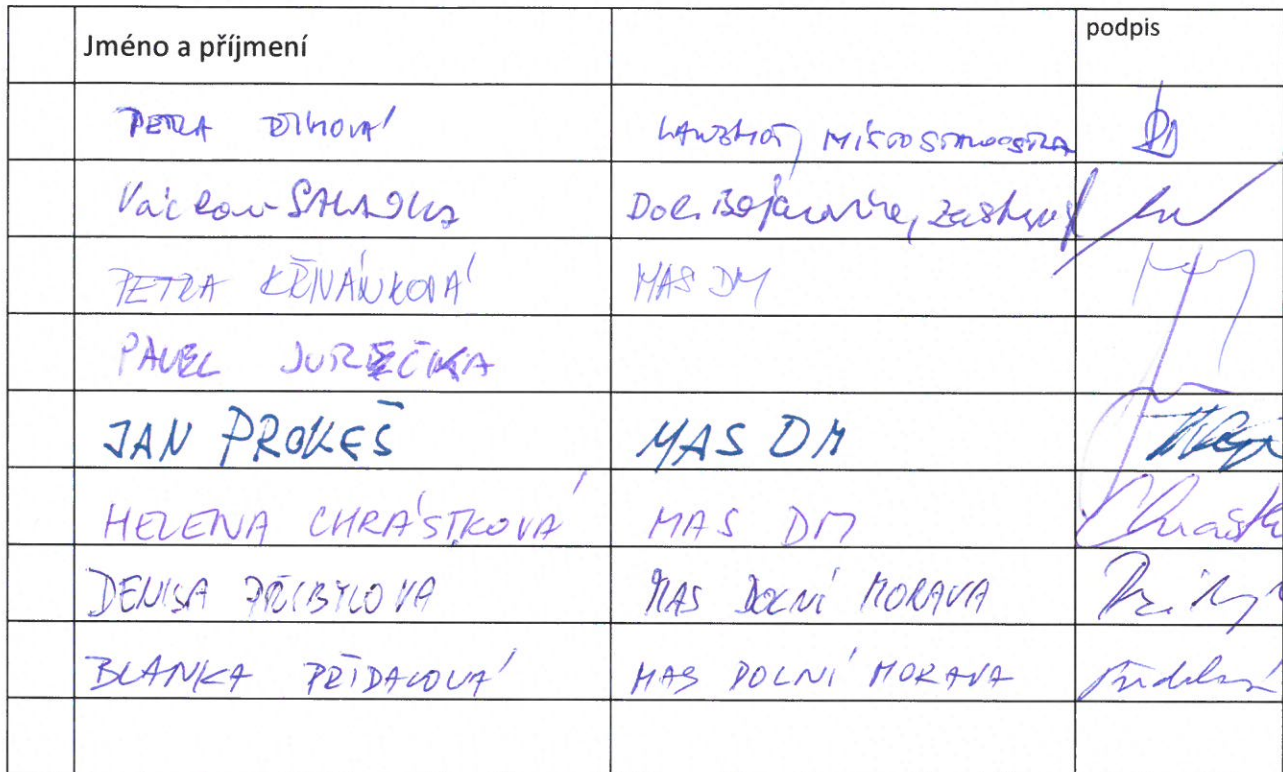 Jméno a příjmení podpis
PETRA LANŽHOT, MÍSTOSTAROSTKA
Václav Dol. Bojanovice, zastupitel
PETRA KŘIVÁNKOVÁ MAS DM
PAVEL JUREČKA
JAN PROKEŠ MAS DM
HELENA CHRÁSTKOVÁ MAS DM
DENISA PŘIBYLOVA MAS DOLNÍ MORAVA
BLANKA PŘÍDALOVÁ MAS DOLNÍ MORAVA